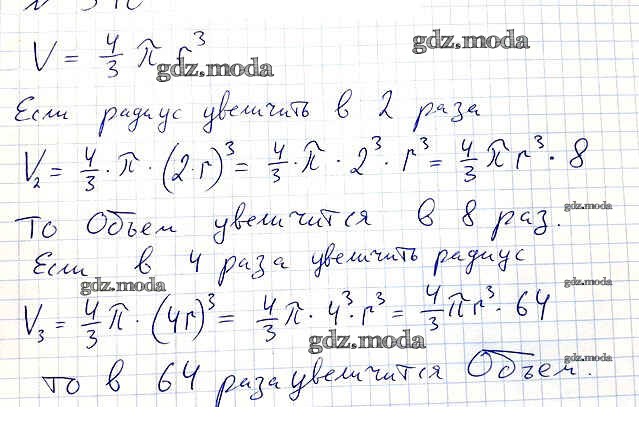 V = 4/3 π r³
gdz.moda
gdz.moda
Если радиус увеличить в 2 раза
V₂ = 4/3 · π · (2·r)³ = 4/3 · π · 2³ · r³ = 4/3 π r³ · 8
gdz.moda
То Объем увеличится в 8 раз.
Если в 4 раза увеличить радиус
gdz.moda
gdz.moda
V₃ = 4/3 π · (4r)³ = 4/3 π · 4³ · r³ = 4/3 πr³ · 64
gdz.moda
gdz.moda
то в 64 раза увеличится Объем.